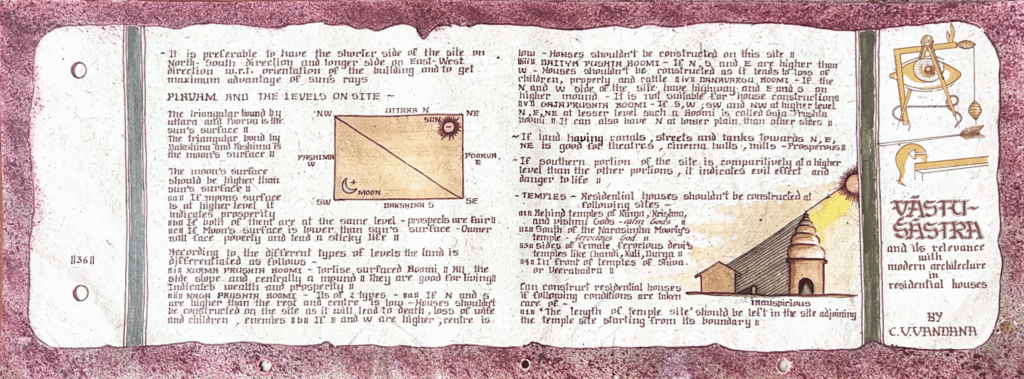 - It is preferable to have the shorter side of the site on
North-South direction and longer side on East-West
direction w.r.t. orientation of the building and to get
maximum advantage of sun's rays
PLAVAM AND THE LEVELS ON SITE ~
The triangular bond by
uttara and Poorva is the
sun's surface ॥
The triangular bond by
Dakshina and Pashima is
the moon's surface ॥
The moon's surface
should be higher than
sun's surface ॥
If moons surface
is at higher level, it
indicates prosperity
If both of them are at the same level - prospects are fair ॥
If Moon's surface is lower than sun's surface - Owner
will face poverty and lead a sticky life ॥
According to the different types of levels the land is
differentiated as follows -
KURMA PRUSHTA BOOMI - Tortise surfaced Boomi ॥ All the
4 slope and centrally a mound ॥ They are good for living ॥
Indicates wealth and prosperity ॥
NAGA PRUSHTA BOOMI - Its of 2 types - If N and S
are higher than the rest and centre is low - Houses shouldn't
be constructed on the site as it will lead to death, loss of wife
and children, enemies ॥ If E and W are higher, centre is
NW
UTTARA N
SUN
NE
PASHIMA
W
POORVA
E
MOON
SW
DAKSHINA S
SE
॥36॥
low - Houses shouldn't be constructed on this site ॥
DAITYA PUSHTA BOOMI - If N, S, and E are higher than
W - Houses shouldn't be constructed as it leads to loss of
children, property and cattle ॥ BOOMI - If the
N and W side of the site have highway, and E and S on
higher mound - It is not suitable for house constructions
GAJA PRUSHTA BOOMI - If S, W, SW and NW at higher level
N, E, NE at lesser level such a Boomi is called Gaja Prushta
Boomi ॥ It can also have N at lower plain than other sides ॥
~ If land having canals, streets and tanks towards N, E,
NE is good for theatres, cinema halls, mills - Prosperous ॥
- If southern portion of the site is comparitively at a higher
level than the other portions, it indicates evil effect and
danger to life ॥
- TEMPLES - Residential houses shouldn't be constructed at
following sites -
Behind temples of Rama, Krishna,
and Vishnu Gods - calm Gods ॥
South of the Narasimha Moorly's
temple - ferocious God ॥
sides of female ferocious devi's
temples like Chandi, Kali, Durga ॥
In front of temples of Shiva,
or Veerabadra ॥
Can construct residential houses
if following conditions are taken
care of -
'The length of temple site' should be left in the site adjoining
the temple site starting from its boundary ॥
inauspicious
VĀSTU-
ŚĀSTRA
and its relevance
with
modern architecture
in
residential houses
BY
C.V.VANDANA